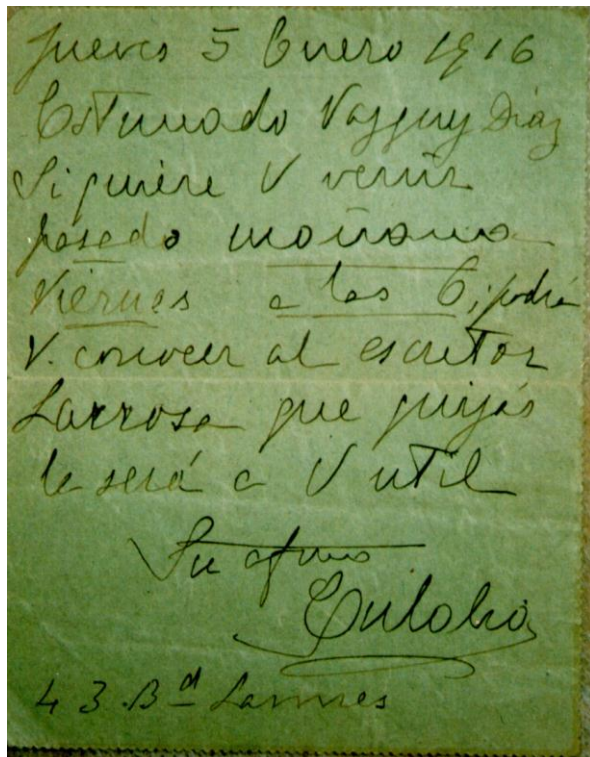 Jueves 5 Enero 1916
Estimado Vazquez Diaz
Si quiere V venir
pasado mañana
Viernes a las 6 podrá
V. conocer al escritor
Larrosa que quizás
le será a V util
Su afmo
Eulalia
43 Bd Lannes